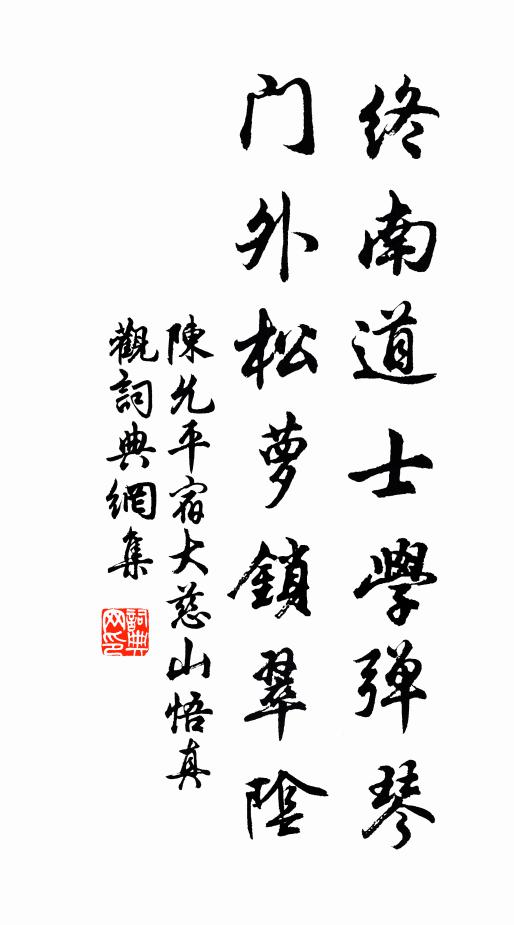 终南道士學弹琴
门外松萝鎖翠陰
陳允平宿大慈山悟真
觀詞典網集
詞典
网印